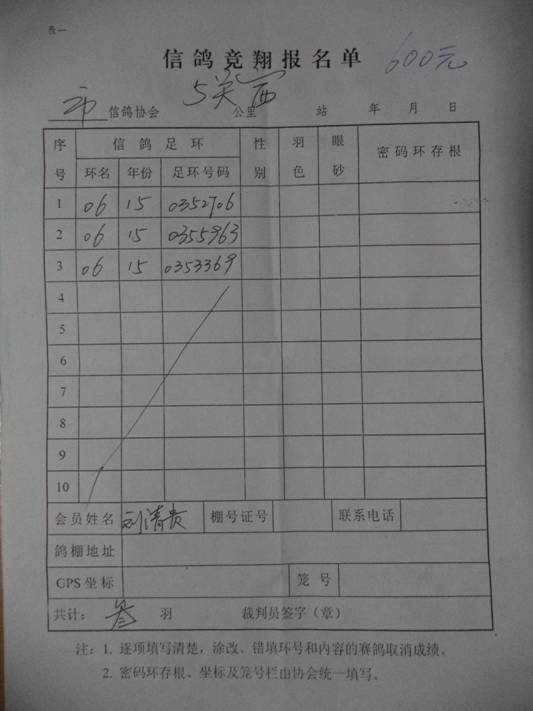 表一
信鸽竞翔报名单 600元
市 信鸽协会 5关西 公里 站 年 月 日
序号 信鸽足环 性别 羽色 眼砂 密码环存根
环名 年份 足环号码
1 06 15 0352706
2 06 15 0355963
3 06 15 0353369
4
5
6
7
8
9
10
会员姓名 刘清贵 棚号证号 联系电话
鸽棚地址
GPS坐标 笼号
共计: 叁 羽 裁判员签字(章)
注: 1. 逐项填写清楚，涂改、错填环号和内容的赛鸽取消成绩。
2. 密码环存根、坐标及笼号栏由协会统一填写。